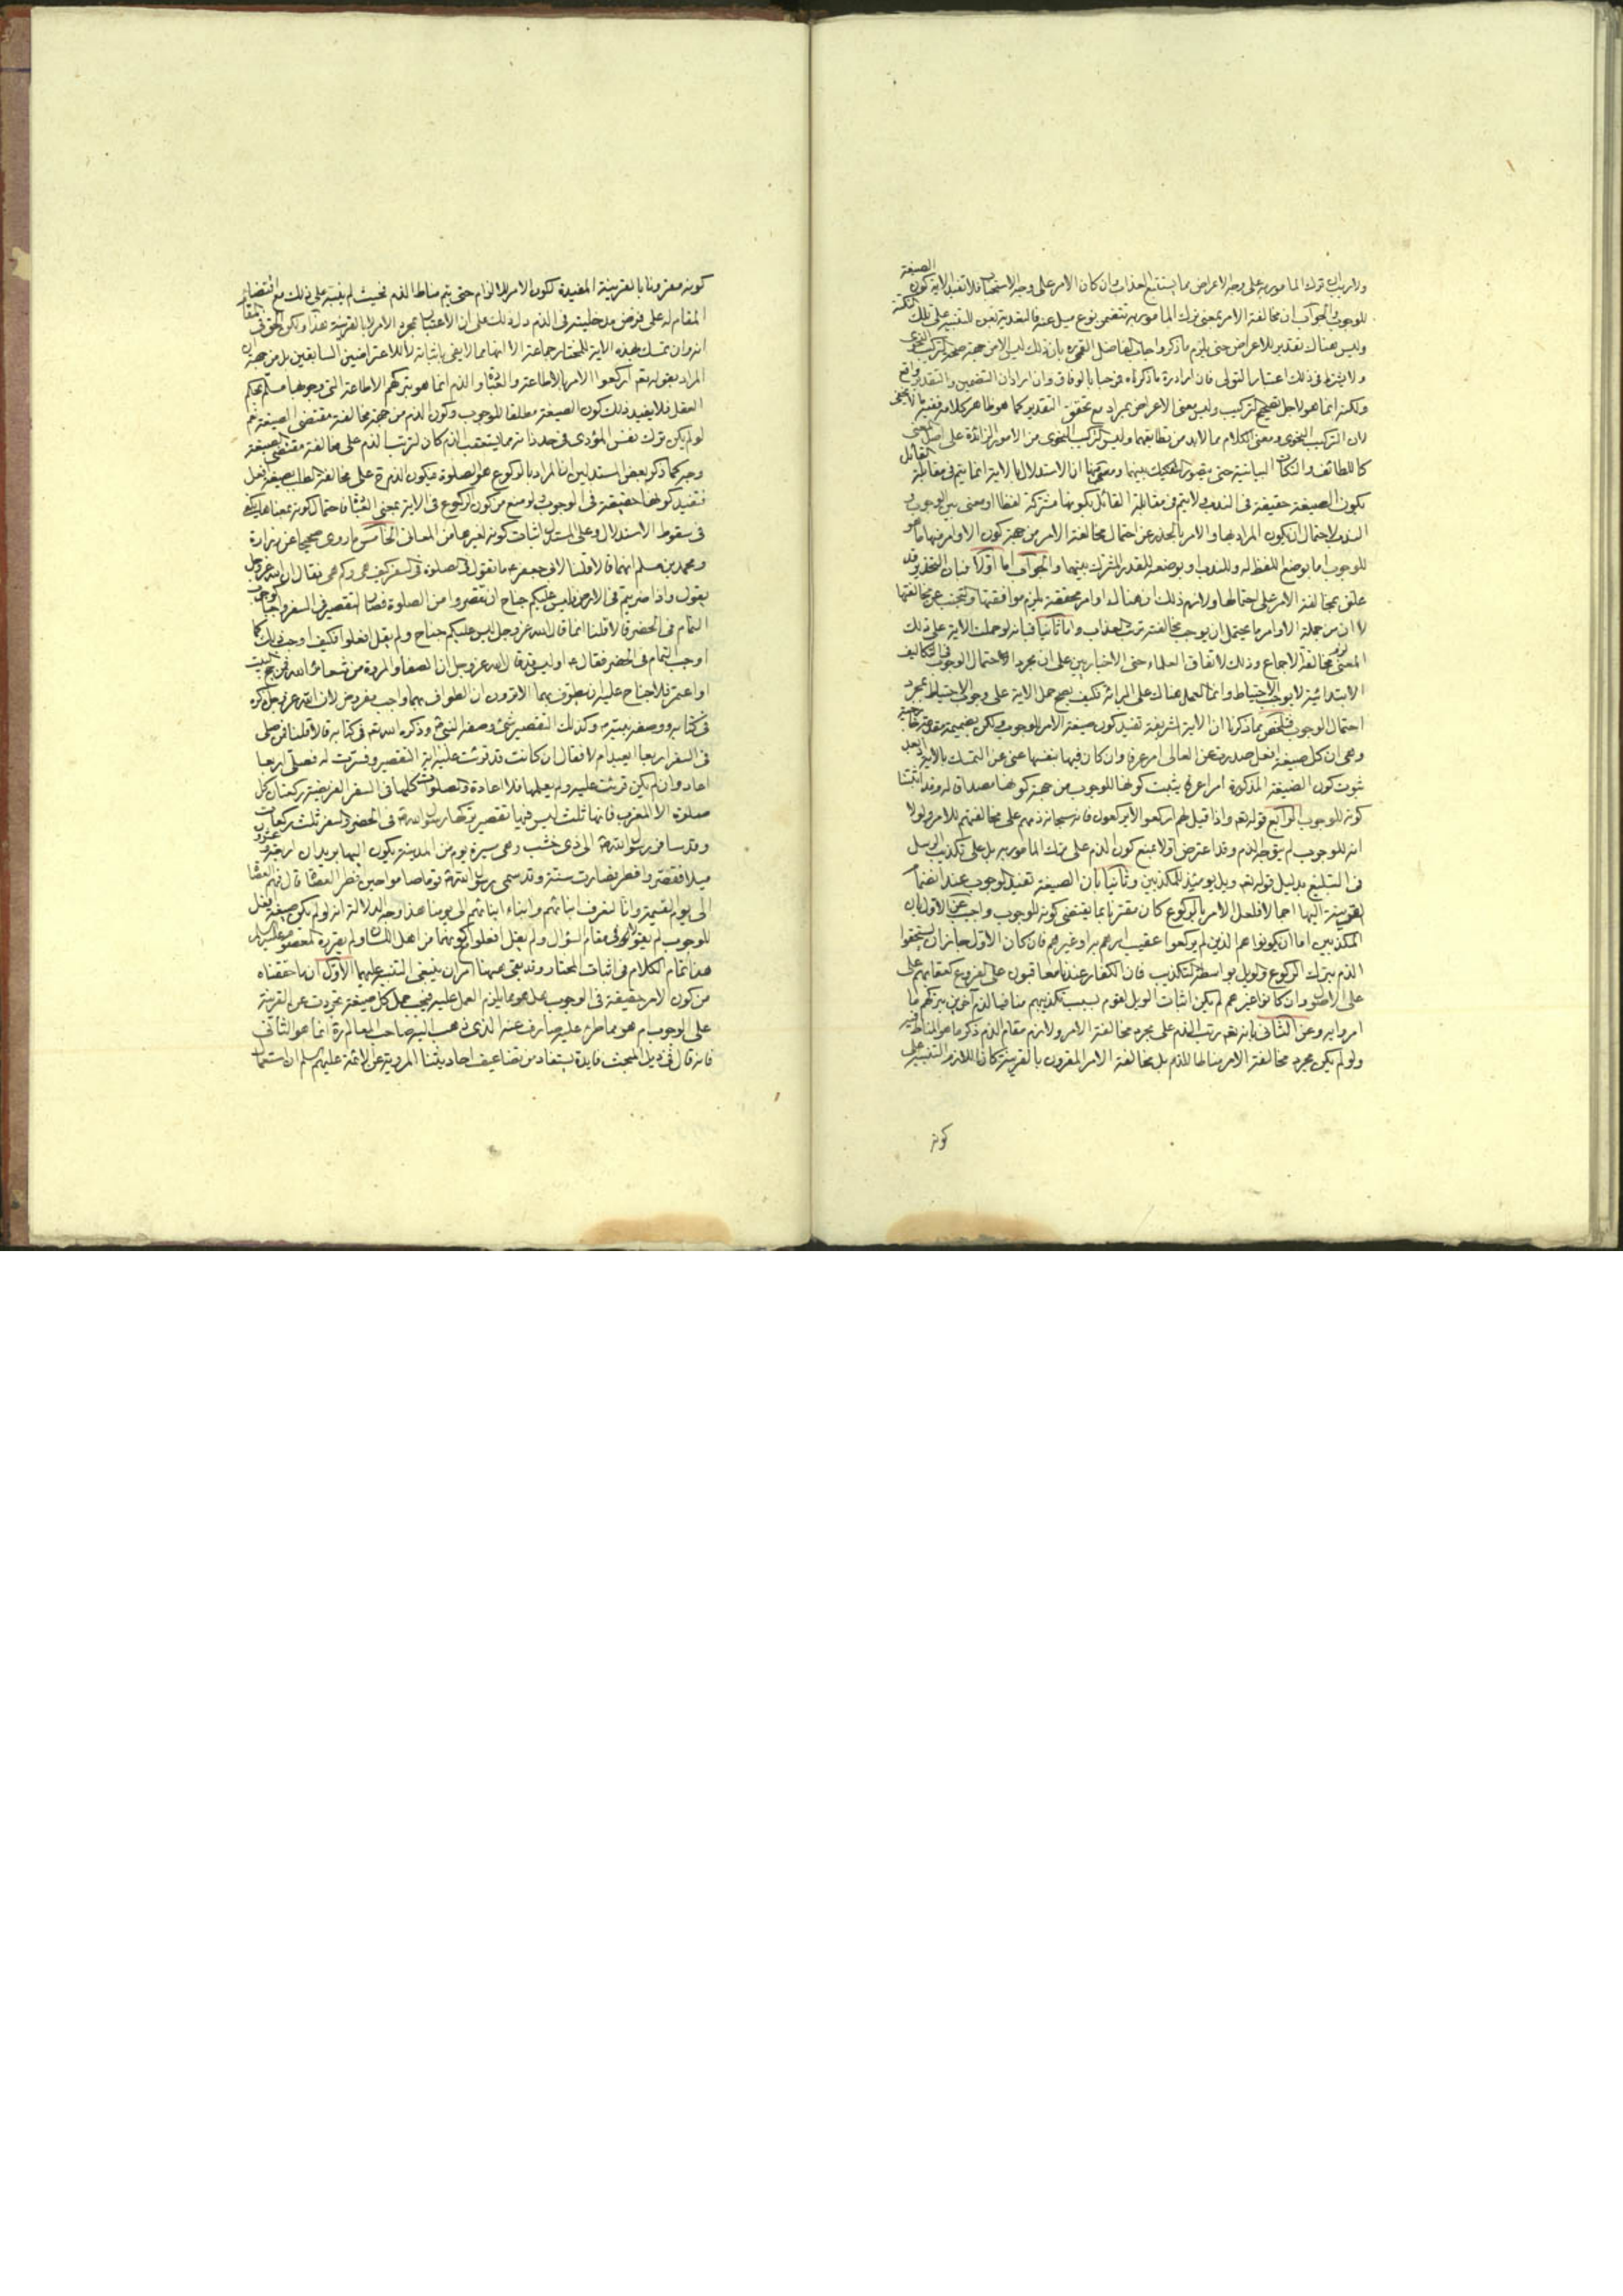 ولا ريب ان ترك المامور به على وجه الاعراض مما يستتبع العذاب وان كان الامر على وجه الاستحباب فلا تفيد الاية كون الصيغة
للوجوب والجواب ان مخالفة الامر بمعنى ترك المامور به تتضمن نوع ميل عنه فالتعدية بعن للتنبيه على تلك النكتة
وليس هناك تقدير للاعراض حتى يلزم ما ذكر
ولا يشترط في ذلك اعتبار التولى فان اراد ما ذكرناه فمرحبا بالوفاق وان اراد ان التضمين والتقدير واقع
ولكنه انما هو لاجل تصحيح التركيب وليس معنى الاعراض بمراد مع تحقق التقدير كما هو ظاهر كلامه ففيه ما لا يخفى
لان التركيب النحوى ومعنى الكلام مما لابد من تطابقهما وليس التركيب النحوى من الامور الزائدة على اصل المعنى
كاللطائف والنكات البيانية حتى يتصور التفكيك بينهما ومنها ان الاستدلال بالاية انما يتم في مقابلة القائل
بكون الصيغة حقيقة في الندب ولا يتم في مقابلة القائل بكونها مشتركة لفظا او معنى بين الوجوب و
الندب لاحتمال ان يكون المراد بها والامر بالحذر عن احتمال مخالفة الامر من جهة كون الاوامر منها ما هو
للوجوب اما بوضع اللفظ له وللندب او بوضعه للقدر المشترك بينهما والجواب اما اولا فبان التحذير قد
علق بمخالفة الامر على احتمالها ولازم ذلك ان هناك اوامر محققة يلزم موافقتها والتجنب عن مخالفتها
لا ان من جملة الاوامر ما يحتمل ان يوجب مخالفته ترتب العذاب واما ثانيا فبانه لو حملت الاية على ذلك
المعنى لزم مخالفة الاجماع وذلك لاتفاق العلماء حتى الاخباريين على ان مجرد احتمال الوجوب في التكاليف
الابتدائية لا يوجب الاحتياط وانما العمل هناك على البرائة فكيف يصح حمل الاية على وجوب الاحتياط بمجرد
احتمال الوجوب فتلخص مما ذكرنا ان الاية الشريفة تفيد كون صيغة الامر للوجوب ولكن بضميمة مقدمة خارجية
وهى ان كل صيغة افعل صدرت عن العالى امر عرفا وان كان فيها بنفسها غنى عن التمسك بالاية بعد
ثبوت كون الصيغة المذكورة امرا عرفا يثبت كونها للوجوب من جهة كونها مصداقا له وقد اثبتنا
كونه للوجوب الرابع قوله تعالى واذا قيل لهم اركعوا لا يركعون فانه سبحانه ذمهم على مخالفتهم للامر ولولا
انه للوجوب لم يتوجه الذم وقد اعترض اولا بمنع كون الذم على ترك المامور به بل على تكذيب الرسل
في التبليغ بدليل قوله تعالى ويل يومئذ للمكذبين وثانيا بان الصيغة تفيد الوجوب عند انضمام
القرينة اليها اجمالا فلعل الامر بالركوع كان مقترنا بما يقتضى كونه للوجوب واجيب عن الاول بان
المكذبين اما ان يكونوا هم الذين لم يركعوا عقيب امرهم به او غيرهم فان كان الاول جاز ان يستحقوا
الذم بترك الركوع والويل بواسطة التكذيب فان الكفار عندنا معاقبون على الفروع كعقابهم على
على الاصول وان كانوا غيرهم لم يكن اثبات الويل لقوم بسبب تكذيبهم منافيا لذم آخرين بتركهم ما
امروا به وعن الثانى بانه تعالى رتب الذم على مجرد مخالفة الامر ولازم مقام الذم ذكر ما هو المناط فيه
ولو لم يكن مجرد مخالفة الامر مناطا للذم بل مخالفة الامر المقرون بالقرينة كان اللازم التنبيه على
كونه
كونه مقرونا بالقرينة المفيدة لكون الامر للالزام حتى يتم مناط الذم فحيث لم ينبه على ذلك مع اقتضاء
المقام له على فرض مدخليته في الذم دل ذلك على ان الاعتبار بمجرد الامر لا بالقرينة هذا ولكن الحق في المقام
انه وان تمسك بهذه الاية للمختار جماعة الا انها مما لا يفى باثباته لا للاعتراضين السابقين بل من جهة ان
المراد بقوله تعالى اركعوا الامر بالاطاعة والعبادة والذم انما هو بتركهم الاطاعة التى وجوبها مسلم بحكم
العقل فلا يفيد ذلك كون الصيغة مطلقا للوجوب وكون الذم من جهة مخالفة مقتضى الصيغة نعم
لو لم يكن ترك نفس المؤدى في حد ذاته مما يستعقب الذم كان لترتب الذم على مخالفة مقتضى الصيغة
وجه كما ذكر بعض المستدلين ان المراد بالركوع هو الصلوة فيكون الذم ح على مخالفة الطلب بصيغة افعل
فتفيد كونها حقيقة في الوجوب ولو منع من كون الركوع في الاية بمعنى العبادة فاحتمال كونه بمعناها يكفى
في سقوط الاستدلال وعلى المستدل اثبات كونه لغيرها من المعانى الخامس ما روى صحيحا عن زرارة
ومحمد بن مسلم انهما قالا قلنا لابى جعفر ع ما تقول في الصلوة في السفر كيف هى وكم هى فقال ان الله عز وجل
يقول واذا ضربتم في الارض فليس عليكم جناح ان تقصروا من الصلوة فصار التقصير في السفر واجبا كوجوب
التمام في الحضر قالا قلنا انما قال الله عز وجل ليس عليكم جناح ولم يقل افعلوا فكيف اوجب ذلك كما
اوجب التمام في الحضر فقال ع اوليس قد قال الله عز وجل ان الصفا والمروة من شعائر الله فمن حج البيت
او اعتمر فلا جناح عليه ان يطوف بهما الا ترون ان الطواف بهما واجب مفروض لان الله عز وجل ذكره
في كتابه ووصفه نبيه ص وكذلك التقصير شئ صنعه النبى ص وذكره الله تعالى في كتابه قالا قلنا فمن صلى
في السفر اربعا ايعيد ام لا فقال ان كانت قد قرئت عليه اية التقصير وفسرت له فصلى اربعا
اعاد وان لم يكن قرئت عليه ولم يعلمها فلا اعادة والصلوات كلها في السفر الفريضة ركعتان كل
صلوة الا المغرب فانها ثلث ليس فيها تقصير تركها رسول الله ص في الحضر والسفر ثلث ركعات
وقد سافر رسول الله ص الى ذى خشب وهى مسيرة يوم من المدينة يكون اليها بريدان اربعة وعشرون
ميلا فقصر وافطر فصارت سنة وقد سمى رسول الله ص قوما صاموا حين افطر العصاة قال فهم العصاة
الى يوم القيمة وانا لنعرف ابنائهم وابناء ابنائهم الى يومنا هذا وجه الدلالة انه لو لم يكن صيغة افعل
للوجوب لم يقولا في مقام السؤال ولم يقل افعلوا مع كونهما من اهل اللسان ولم يقررهما المعصوم عليه السلام
هذا تمام الكلام في اثبات المختار وقد بقى هيهنا امران ينبغى التنبيه عليهما الاول ان ما حققناه
من كون الامر حقيقة في الوجوب هل هو مما يلزم العمل عليه فيجب حمل كل صيغة تجردت عن القرينة
على الوجوب ام هو مما طرء عليه صارف عنه الذى ذهب اليه صاحب المعالم ره انما هو الثانى
فانه قال في ذيل المبحث فايدة يستفاد من تضاعيف احاديثنا المروية عن الائمة عليهم السلم ان استعمال